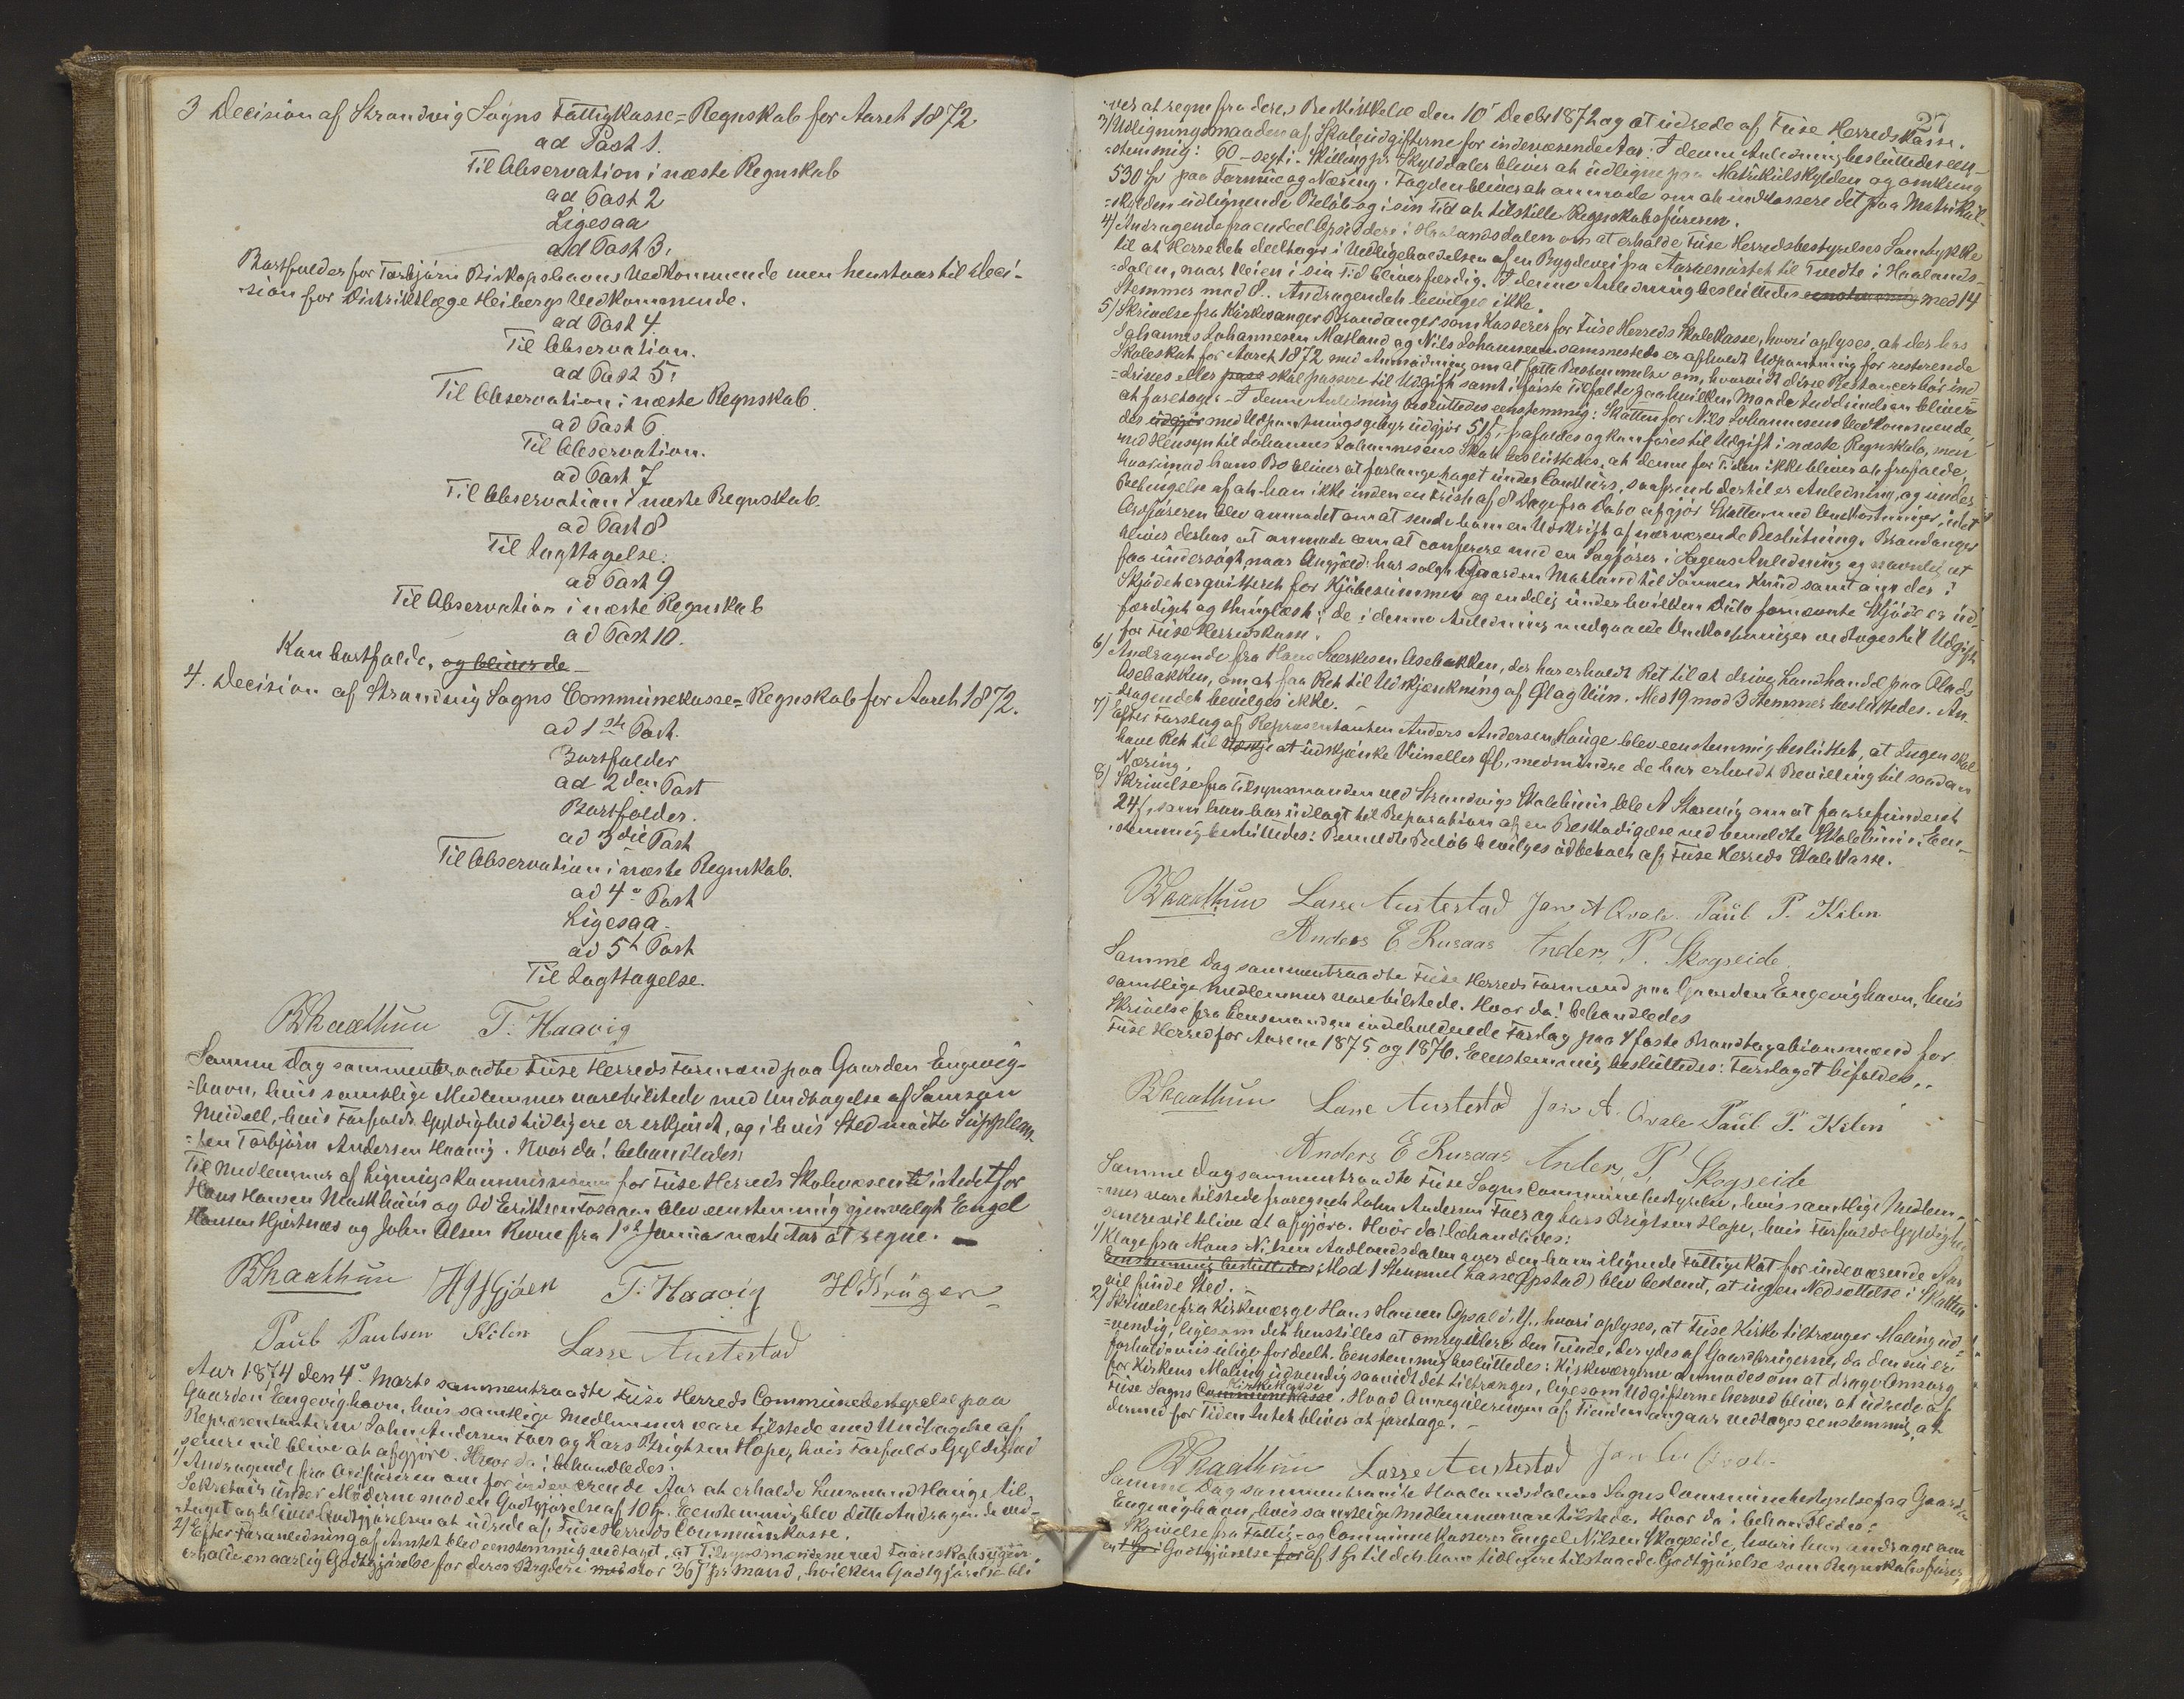 3 Decision af Strandvig Sogns Fattigkasse=Regnskab for Aaret 1872.
ad Post 1.
Til Observation i næste Regnskab
ad Post 2
Ligesaa
ad Post 3.
Bortfalder for Torbjørn Biskopshavns Vedkommende men henstaar til Deci-
sion for Distriktlæge Heibergs Vedkommende.
ad Post 4.
Til Observation.
ad Post 5.
Til Observation i næste Regnskab.
ad Post 6.
Til Observation.
ad Post 7
Til Observation i næste Regnskab.
ad Post 8
Til Iagttagelse.
ad Post 9
Til Observation i næste Regnskab
ad Post 10.
Kan bortfalde, og bliver de
4. Decision af Strandvig Sogns Communekasse=Regnskab for Aaret 1872.
ad 1ste Post.
Bortfalder
ad 2den Post
Bortfalder.
ad 3die Post
Til Observation i næste Regnskab.
ad 4de Post
Ligesaa.
ad 5te Post
Til Iagttagelse.
BHaathun T. Haavig
Samme Dag sammentraadte Fuse Herreds Formænd paa Gaarden Engevig-
=havn, hvis samtlige Medlemmer vare tilstede med Undtagelse af Samson
Meidell, hvis Forfalds Gyldighed tidligere er erkjendt, og i hvis Sted mødte Supplean-
=ten Torbjørn Andersen Haavig. Hvor da! behandledes
Til Medlemmer af Ligningskommissionen for Fuse Herreds Skolevæsen istedetfor
Hans Hansen Markhuus og Od Eriksen Tosaam blev eenstemmig gjenvalgt Engel
Hansen Hjertnæs og John Olsen Revne fra 1ste Januar næste Aar at regne. —
BHaathun T. Haavig H Krüger
Paul Paulsen Kilen Lasse Austestad
Aar 1874 den 4de Marts sammentraadte Fuse Herreds Communebestyrelse paa
Gaarden Engevighavn, hvis samtlige Medlemmer vare tilstede med Undtagelse af
Repræsentanterne John Andersen Foer og Lars Brigtsen Hope, hvis Forfalds Gyldighed
senere vil blive at afgjøre. Hvor da! behandledes:
1) Andragende fra Ordføreren om for indeværende Aar at erholde Lensmand Hauge til
Sekretair under Møderne mod en Godtgjørelse af 10 Spd. Eenstemmig blev dette Andragende ved-
=taget og bliver Godtgjørelsen at udrede af Fuse Herreds Communekasse.
2) Efter Foranledning af Amtet blev eenstemmig vedtaget, at Tilsynsmændene ved Faareskabsygen
erholde en aarlig Godtgjørelse for deres Bryderi stor 36 ß pr Mand, hvilken Godtgjørelse bli
27
=ver at regne fra deres Beskikkelse den 10de Decbr 1872 og at udrede af Fuse Herredskasse.
3) Udligningsmaaden af Skoleudgifterne for indeværende Aar. I denne Anledning besluttedes een-
=stemmig: 60 – sexti – Skilling pr Skylddaler bliver at udligne paa Matrikulskylden og omkring
530 Spd paa Formue og Næring. Fogden bliver at anmode om at indkassere det paa Matrikul-
=skylden udlignende Beløb og i sin Tid at tilstille Regnskabsføreren.
4) Andragende fra endeel Opsiddere i Haalandsdalen om at erholde Fuse Herredsbestyrelses Samtykke
til at Herredet deeltager i Vedligeholdelsen af en Bygdevei fra Aarhusøstet til Tvedte i Haalands-
=dalen, naar Veien i sin Tid bliver færdig. I denne Anledning besluttedes eenstemmig med 14
Stemmer mod 8. Andragendet bevilges ikke.
5) Skrivelse fra Kirkesanger Strandanger som Kasserer for Fuse Herreds Skolekasse, hvori oplyses, at der hos
Johannes Johannesen Marland og Nils Johannesen sammesteds er afholdt Udpantning for resterende
Skoleskat for Aaret 1872 med Anmodning om at fatte Bestemmelse om, hvorvidt disse Restancer bør ind-
=drives eller skal passere til Udgift samt i første Tilfælde paa hvilken Maade Inddrivelsen bliver
at foretage. I denne Anledning besluttedes eenstemmig: Skatten for Nils Johannesens Vedkommende,
der udgjør med Udpantningsgebyr udgjør 51 ß, frafaldes og kan føres til Udgift i næste Regnskab, men
med Hensyn til Johannes Johannesens Skat besluttedes, at denne for Tiden ikke bliver at frafalde,
hvorimod hans Bo bliver at forlange taget under Concurs, saafremt dertil er Anledning, og under
Betingelse af at han ikke inden en Frist af 8 Dage fra Dato afgjør Skatten med Omkostninger, idet
Ordføreren blev anmodet om at sende ham en Udskrift af nærværende Beslutning. Strandanger
bliver derhos at anmode om at conferere med en Sagfører i Sagens Anledning og navnlig at
faa undersøgt, naar Angjæld. har solgt Gaarden Marland til Sønnen Knud samt om der i
Skjødet er qvitteret for Kjøbesummen og endelig under hvilken Dato fornævnte Skjøde er ud-
færdiget og thinglæst; de i denne Anledning medgaaede Omkostninger vedtoges til Udgift
for Fuse Herredskasse.
6) Andragende fra Hans Lærkesen Osebakken, der har erholdt Ret til at drive Landhandel paa Plads
Osebakken, om at faa Ret til Udskjænkning af Øl og Viin. Med 19 mod 3 Stemmer besluttedes. An-
dragendet bevilges ikke.
7) Efter Forslag af Repræsentanten Anders Andersen Hauge blev eenstemmig besluttet, at Ingen skal
have Ret til at udskjænke Viin eller Øl, medmindre de har erholdt Bevilling til saadan
Næring.
8) Skrivelse fra Tilsynsmanden ved Strandvigs Skolehuus Ole A Storevig om at faa refunderet
24 ß, som han har udlagt til Reparation af en Beskadigelse ved bemeldte Skolehuus. Een-
stemmig besluttedes: Bemeldte Beløb bevilges udbetalt af Fuse Herreds Skolekasse.
BHaathun Lasse Austestad Jon A Qvale Paul P. Kilen
Anders E Rusaas Anders P. Skogseide
Samme Dag sammentraadte Fuse Herreds Formænd paa Gaarden Engevighavn, hvis
samtlige Medlemmer vare tilstede. Hvor da! behandledes
Skrivelse fra Lensmanden indeholdende Forslag paa 4 faste Brandtaxationsmænd for
Fuse Herred for Aarene 1875 og 1876. Eenstemmig besluttedes: Forslaget bifaldes.
BHaathun Lasse Austestad Jon A. Qvale Paul P. Kilen
Anders E Rusaas Anders P. Skogseide
Samme Dag sammentraadte Fuse Sogns Communebestyrelse, hvis samtlige Medlem-
=mer vare tilstede fraregnet John Andersen Foer og Lars Brigtsen Hope, hvis Forfalds Gyldighed
senere vil blive at afgjøre. Hvor da! behandledes:
1) Klage fra Mons Nilsen Aadlandsdalen over den ham ilignede Fattigskat for indeværende Aar
Eenstemmig besluttedes Mod 1 Stemme (Lasse Opstad) blev bestemt, at ingen Nedsættelse i Skatten
vil finde Sted. –
2) Skrivelse fra Kirkeværge Hans Hansen Opsal d. Y., hvori oplyses, at Fuse Kirke tiltrænger Maling ud-
=vendig, ligesom det henstilles at omregulere den Tiende, der ydes af Gaardbrugerne, da den nu er
forholdsviis ulige fordeelt. Eenstemmig besluttedes: Kirkeværgerne anmodes om at drage Omsorg
for Kirkens Maling udvendig saavidt det tiltrænges, ligesom Udgifterne herved bliver at udrede af
Fuse Sogns Communekasse Kirkekasse. Hvad Omreguleringen af Tienden angaar vedtoges eenstemmig, at
dermed for Tiden Intet bliver at foretage. –
BHaathun Lasse Austestad
Samme Dag sammentraadte Haalandsdalens Sogns Communebestyrelse paa Gaarden
Engevighavn, hvis samtlige Medlemmer vare tilstede. Hvor da! behandledes:
Skrivelse fra Fattig- og Communekasserer Engel Nilsen Skogseide, hvori han andrager om
en Godtgjørelse for af 1 Spd til det ham tidligere tilstaaede Godtgjørelse som Regnskabsfører,